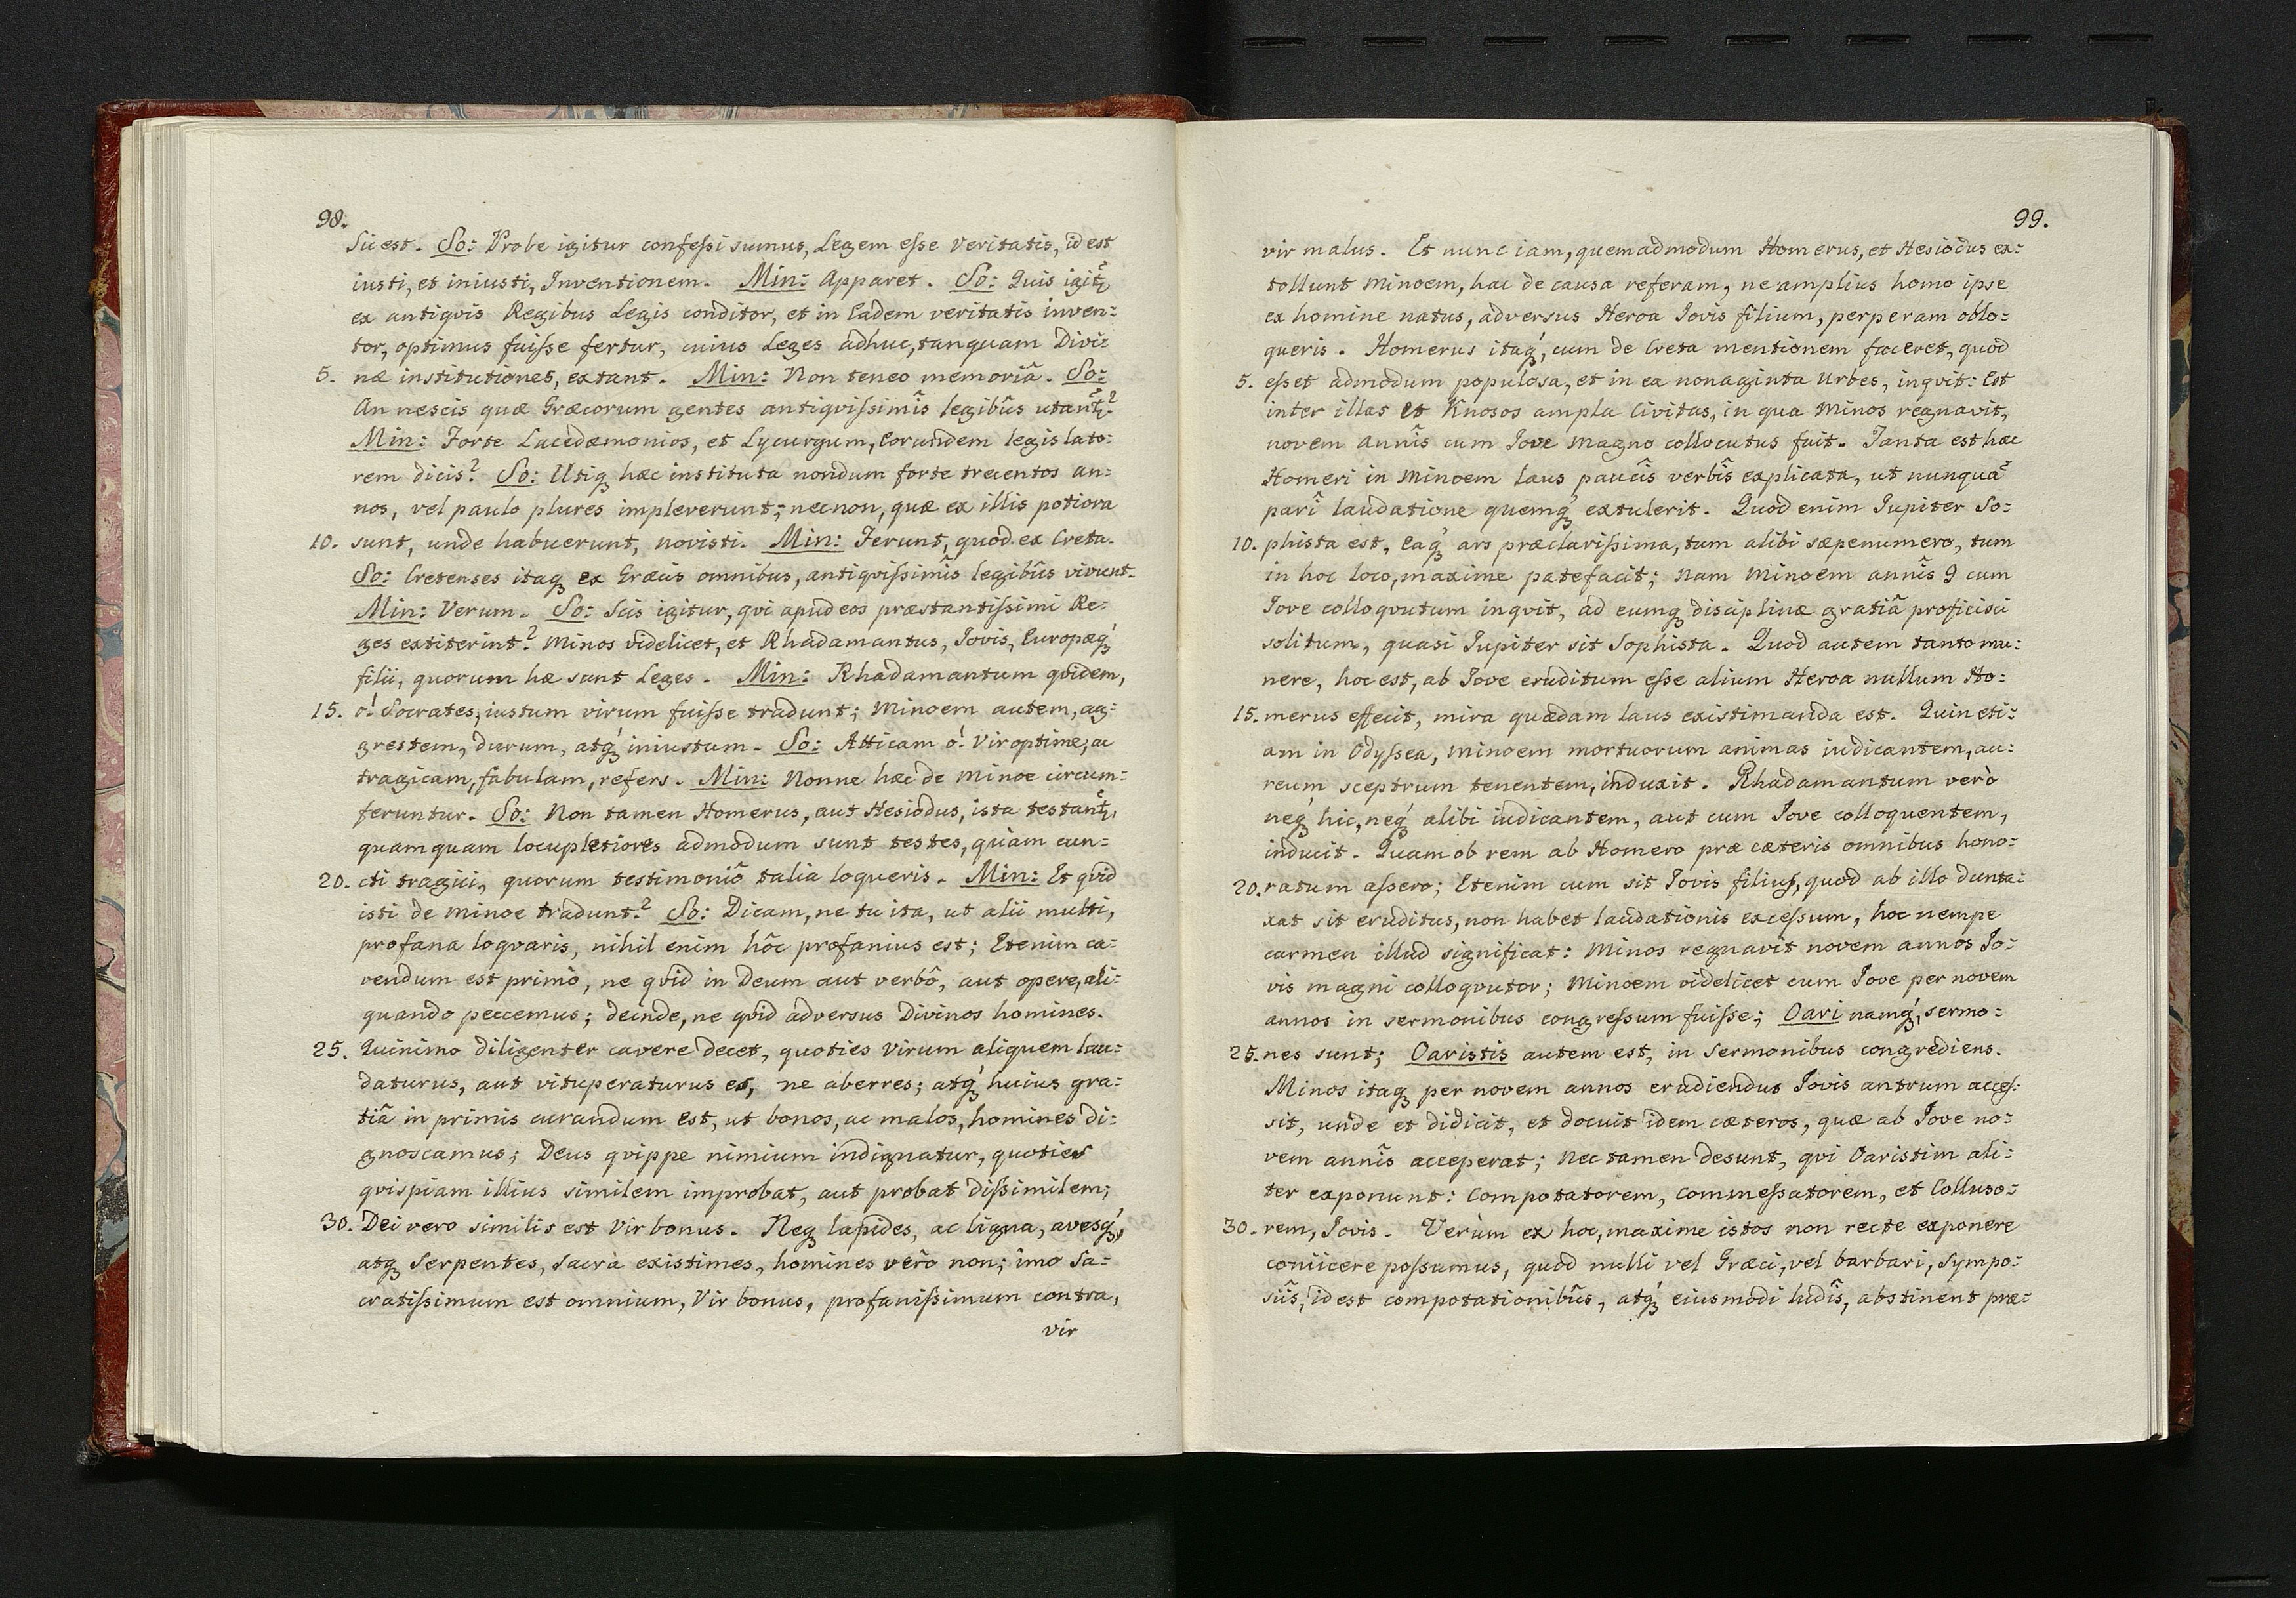 98.
Sic est. So: Probe igitur confeſsi sumus, Legem eſse veritatis, id est
iusti, et iniusti, Inventionem. Min: Apparet. So: Quis igitr̃
ex antiqvis Regibus Legis conditor, et in Eadem veritatis inven:
tor, optimus fuiſse fertur, cuius Leges adhuc, tanquam Divi:
5. næ institutiones, extant. Min: Non teneo memoriã. So:
An nescis quæ Græcorum gentes antiqviſsimîs legibûs utantr̃?
Min: Forte Lacedæmonios, et Lycurgum, Eorundem legislato:
rem dicis? So: Utiqꝫ hæc instituta nondum forte trecentos an:
nos, vel paulo plures impleverunt; necnon, quæ ex illis potiora
10. sunt, unde habuerunt, novisti. Min: Ferunt, quod ex Creta.
So: Cretenses itaqꝫ ex Græcis omnibus, antiqviſsimîs legibûs vivunt.
Min: Verum. So: Scis igitur, qvi apud eos præstantiſsimi Re:
ges extiterint? Minos videlicet, et Rhadamantus, Jovis, Europæqꝫ́
filii, quorum hæ sunt Leges. Min: Rhadamantum qvidem,
15. o! Socrates, iustum virum fuiſse tradunt; Minoem autem, ag:
grestem, durum, atqꝫ́ iniustum. So: Atticam o! Vir optime, ac
tragicam, fabulam, refers. Min: Nonne hæc de Minoe circum:
feruntur. So: Non tamen Homerus, aut Hesiodus, ista testantr̃,
quamquam locupletiores admodum sunt testes, quàm cun:
20. cti tragici, quorum testimoniô talia loqueris. Min: Et qvid
isti de Minoe tradunt? So: Dicam, ne tu ita, ut alii multi,
profana loqvaris, nihil enim hôc profanius est; Etenim ca:
vendum est primò, ne qvid in Deum aut verbô, aut opere, ali:
quando peccemus; deinde, ne qvid adversus Divinos homines.
25. Quinimo diligenter cavere decet, quoties Virum aliquem lau:
daturus, aut vituperaturus es, ne aberres; atqꝫ́ huius gra:
tiâ in primis curandum est, ut bonos, ac malos, homines di:
gnoscamus; Deus qvippe nimium indignatur, quoties
qvispiam illius similem improbat, aut probat diſsimilem;
30. Dei vero similis est Vir bonus. Neqꝫ lapides, ac ligna, avesqꝫ́,
atqꝫ Serpentes, sacra existimes, homines verò non; imo Sa:
cratiſsimum est omnium, Vir bonus, profaniſsimum contra,
vir
99.
vir malus. Et nunc iam, quemadmodum Homerus, et Hesiodus ex:
tollunt Minoem, hac de causa referam, ne amplius homo ipse
ex homine natus, adversus Heroa Iovis filium, perperam oblo:
queris. Homerus itaqꝫ́, cum de Creta mentionem faceret, quod
5. eſset admodum populosa, et in ea nonaginta Urbes, inqvit: Est
inter illas et Knosos ampla Civitas, in qua Minos regnavit,
novem annîs cum Jove magno collocutus fuit. Tanta est hæc
Homeri in Minoem laus paucîs verbîs explicata, ut nunquã
parî laudatione quemqꝫ́ extulerit. Quod enim Jupiter So:
10. phista est, Eaqꝫ́ ars præclariſsima, tum alibi sæpenumero, tum
in hoc loco, maxime patefacit; Nam Minoem annîs 9 cum
Iove colloqvutum inqvit, ad eumqꝫ disciplinæ gratiâ proficisci
solitum, quasi Jupiter sit Sophista. Quod autem tanto mu:
nere, hoc est, ab Jove eruditum eſse alium Heroa nullum Ho:
15. merus effecit, mira quædam laus existimanda est. Quin eti:
am in Odyſsea, Minoem mortuorum animas iudicantem, au:
reum sceptrum tenentem, induxit. Rhadamantum verò
neqꝫ́ hic, neqꝫ́ alibi iudicantem, aut cum Jove colloquentem,
inducit. Quam ob rem ab Homero præ cæteris omnibus hono:
20. ratum aſsero; Etenim cum sit Iovis filius, quod ab illo dunta:
xat sit eruditus, non habet laudationis exceſsum, hoc nempe
carmen illud significat: Minos regnavit novem annos Jo:
vis magni colloqvutor; Minoem videlicet cum Jove per novem
annos in sermonibus congreſsum fuiſse; Oari namqꝫ́, sermo:
25. nes sunt; Oaristis autem est, in Sermonibus congrediens.
Minos itaqꝫ per novem annos erudiendus Jovis antrum acceſ:
sit, unde et didicit, et docuit idem cæteros, quæ ab Jove no:
vem annîs acceperat; Nec tamen desunt, qvi Oaristim ali:
ter exponunt: Compotatorem, Commeſsatorem, et Colluso:
30. rem, Jovis. Verùm ex hoc, maxime istos non recte exponere
coniicere poſsumus, quod nulli vel Græci, vel barbari, Sympo:
siîs, id est compotationibûs, atqꝫ́ eiusmodi ludîs, abstinent præ: